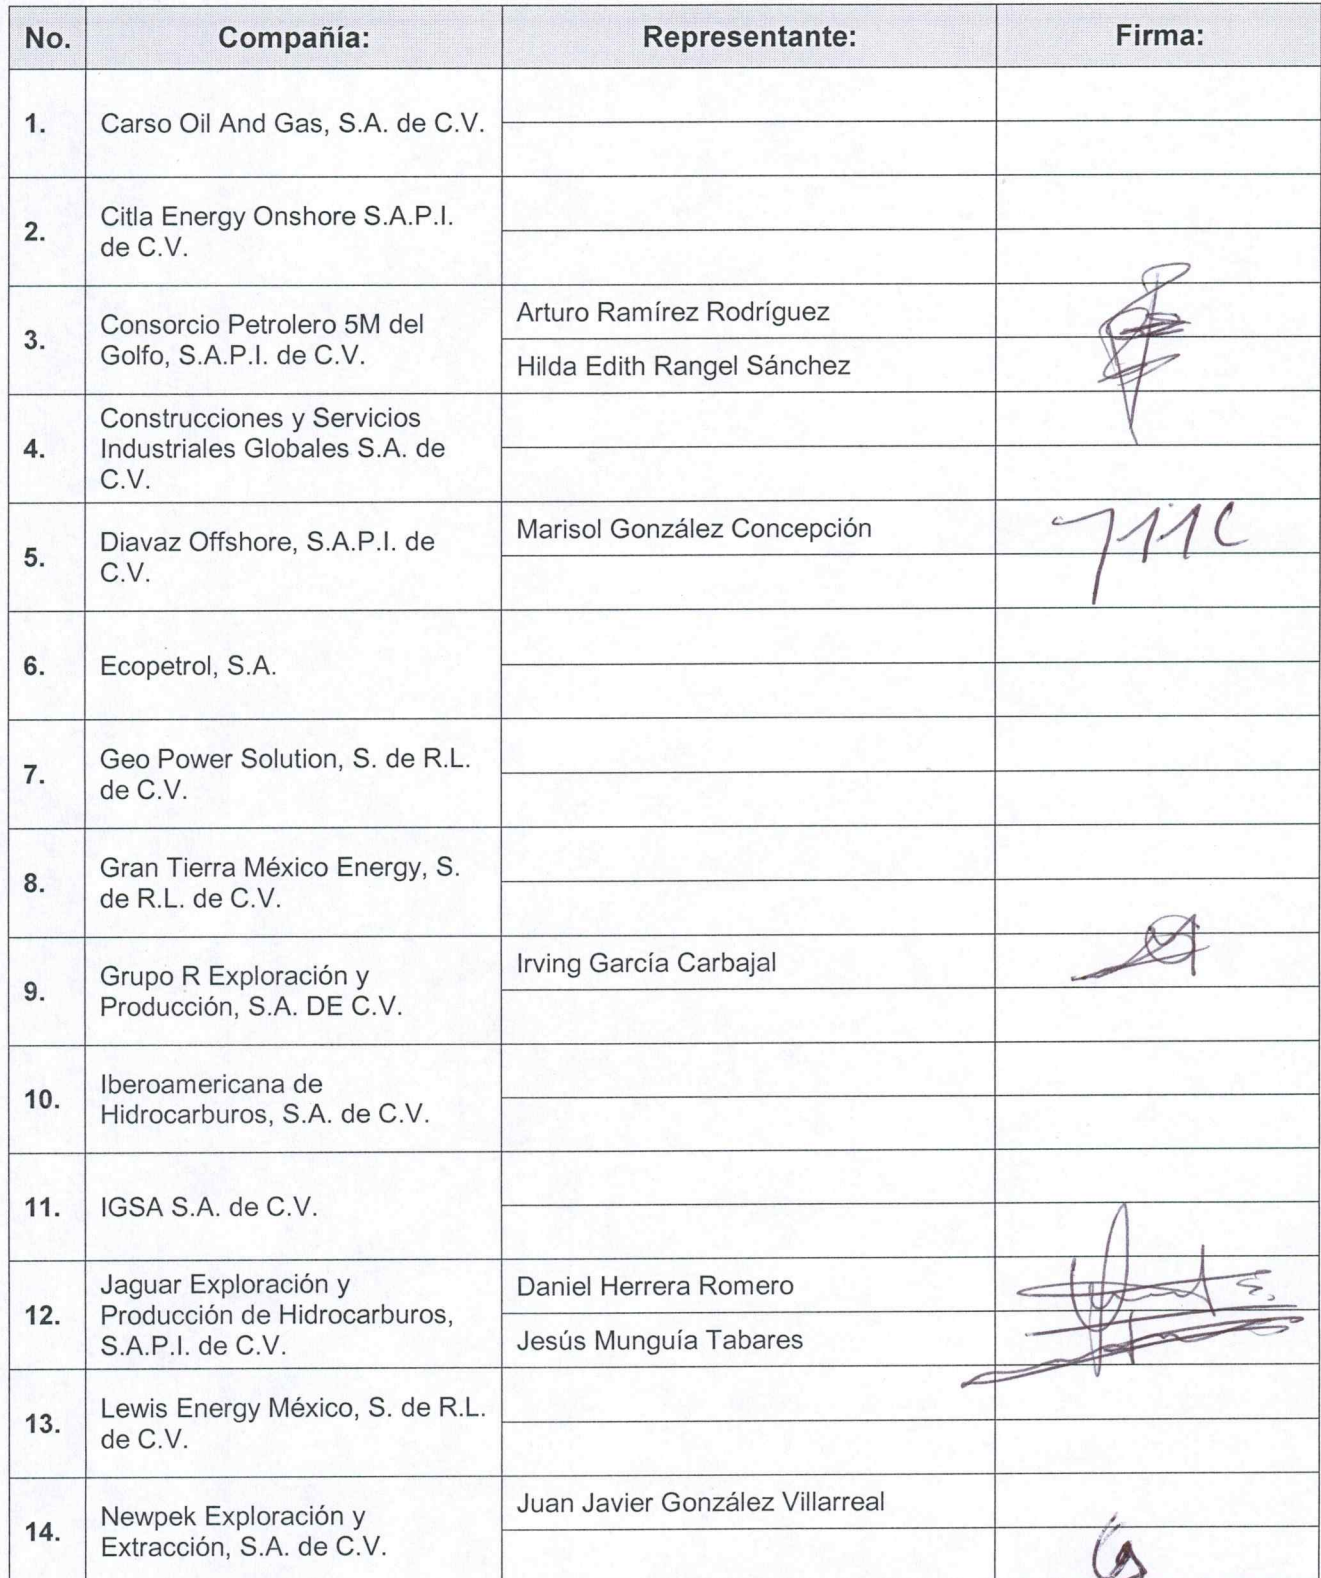 No. Compañía: Representante: Firma:
1. Carso Oil And Gas, S.A. de C.V.
2. Citla Energy Onshore S.A.P.I.
de C.V.
3. Consorcio Petrolero 5M del
Golfo, S.A.P.I. de C.V.
Arturo Ramírez Rodríguez
Hilda Edith Rangel Sánchez
4. Construcciones y Servicios
Industriales Globales S.A. de
C.V.
5. Diavaz Offshore, S.A.P.I. de
C.V.
Marisol González Concepción
6. Ecopetrol, S.A.
7. Geo Power Solution, S. de R.L.
de C.V.
8. Gran Tierra México Energy, S.
de R.L. de C.V.
9. Grupo R Exploración y
Producción, S.A. DE C.V.
Irving García Carbajal
10. Iberoamericana de
Hidrocarburos, S.A. de C.V.
11. IGSA S.A. de C.V.
12. Jaguar Exploración y
Producción de Hidrocarburos,
S.A.P.I. de C.V.
Daniel Herrera Romero
Jesús Munguía Tabares
13. Lewis Energy México, S. de R.L.
de C.V.
14. Newpek Exploración y
Extracción, S.A. de C.V.
Juan Javier González Villarreal